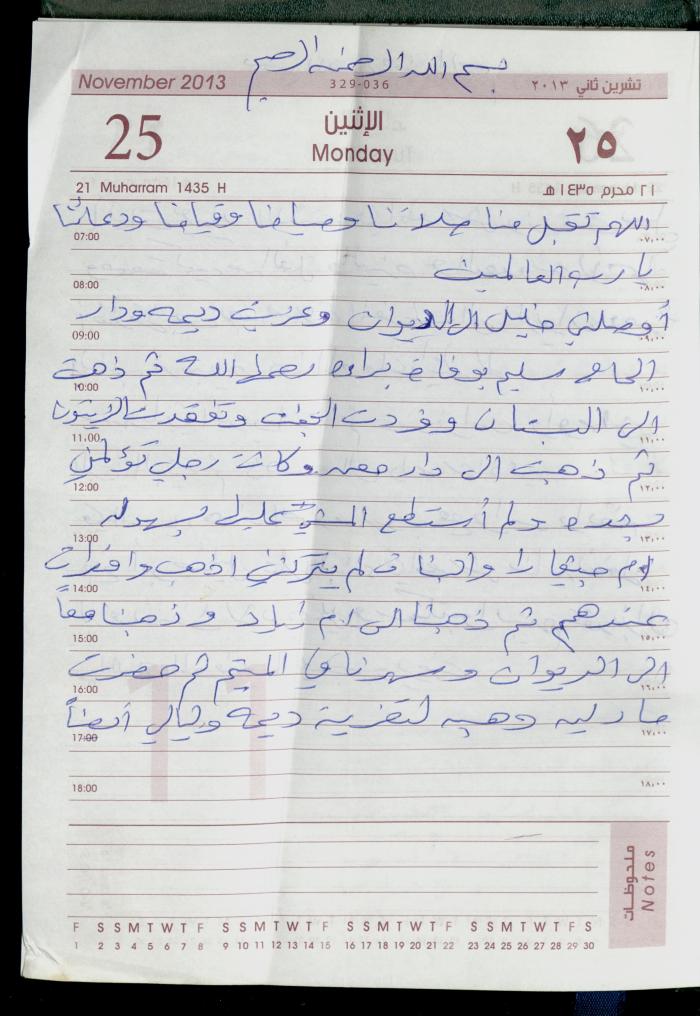 بسم الله الرحمن الرحيم
November 2013 329-036 تشرين ثاني ٢٠١٣
25 الإثنين ٢٥
Monday
21 Muharram 1435 H ٢١ محرم ١٤٣٥ هـ
اللهم تقبل منا صلاتنا وصيامنا وقيامنا ودعائنا
07:00 ٠٧,٠٠
يا رب العالمين
08:00 ٠٨,٠٠
أوصلني خليل الى الديوان وعزيت ديمه ودار
09:00 ٠٩,٠٠
الحاج سليم بوفاة براءه رحمها الله ثم ذهبت
10:00 ١٠,٠٠
الى البستان وتفقدت الزيتون
11:00 ١١,٠٠
ثم ذهبت الى دار وكانت رجلي تؤلمني
12:00 ١٢,٠٠
بشده ولم أستطع المشي عليها بسهوله
13:00 ١٣,٠٠
ام والبنات لم يتركنني اذهب
14:00 ١٤,٠٠
عندهم ثم ذهبنا الى ام زياد وذهبنا معاً
15:00 ١٥,٠٠
الى الديوان وسهرنا في ثم حضرت
16:00 ١٦,٠٠
ماريه وهبه لتعزية ديمه وليالي أيضاً
17:00 ١٧,٠٠
18:00 ١٨,٠٠
ملحوظات
Notes
F S S M T W T F S S M T W T F S S M T W T F S S M T W T F S
1 2 3 4 5 6 7 8 9 10 11 12 13 14 15 16 17 18 19 20 21 22 23 24 25 26 27 28 29 30